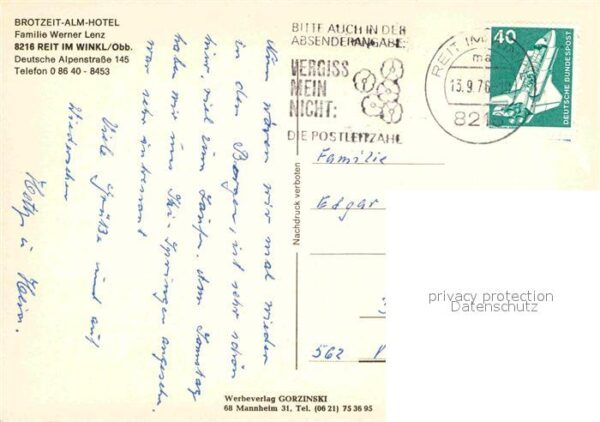 BROTZEIT-ALM-HOTEL
Familie Werner Lenz
8216 REIT IM WINKL/Obb.
Deutsche Alpenstraße 145
Telefon 0 86 40 - 8453
BITTE AUCH IN DER
ABSENDERANGABE:
VERGISS
MEIN
NICHT:
DIE POSTLEITZAHL
REIT IM
13.9.76
821
40
DEUTSCHE BUNDESPOST
Nun waren wir mal wieder
in den Bergen, ist sehr schön
nur mal zum Laufen. Am Samstag
haben wir uns Ski-Springen angesehn.
war sehr interessant
Viele Grüße und auf
Wiedersehen
Heinz.
Familie
Edgar
562
Nachdruck verboten
privacy protection
Datenschutz
Werbeverlag GORZINSKI
68 Mannheim 31, Tel. (06 21) 75 36 95